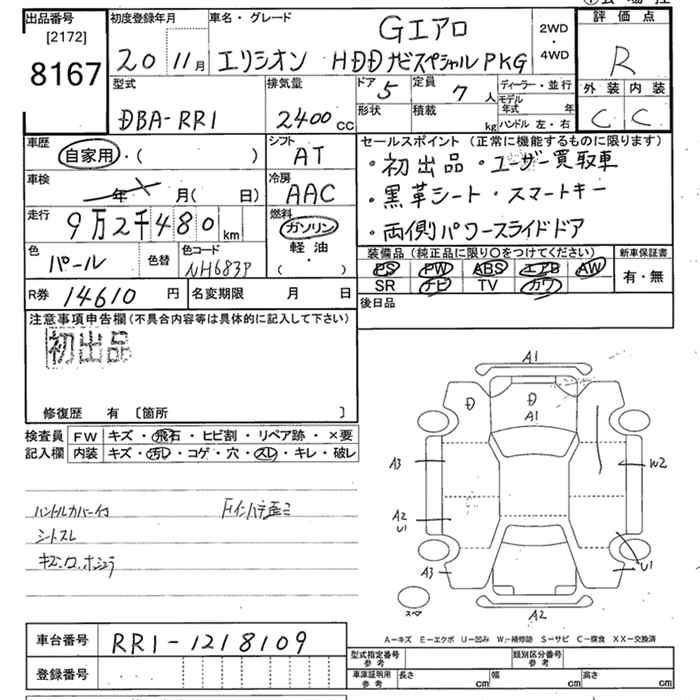 出品番号
[2172]
8167
初度登録年月
20 11月
車名・グレード
Gエアロ
エリシオン HDDナビスペシャルPKG
2WD
・
4WD
評価点
R
外装 内装
C C
型式
DBA-RR1
排気量
2400 CC
ドア 5
定員 7 人
形状
積載 kg
ディーラー・並行
モデル年式 年
ハンドル 左・右
車歴
自家用・( )
シフト
AT
セールスポイント (正常に機能するものに限ります)
・初出品・ユーザー買取車
・黒革シート・スマートキー
・両側パワースライドドア
車検
年 月( 日)
冷房
AAC
走行
9万2千480km
燃料
ガソリン
軽油
( ・ )
色
パール
色替
色コード
NH683P
装備品 (純正品に限り○をつけてください)
PS PW ABS エアB AW
SR ナビ TV カワ
新車保証書
有・無
R券 14610 円
名変期限 月 日
後日品
注意事項申告欄(不具合内容等は具体的に記入して下さい)
初出品
修復歴 有 〔箇所 〕
検査員記入欄
FW キズ・飛石・ヒビ割・リペア跡・×要
内装 キズ・汚レ・コゲ・穴・スレ・キレ・破レ
ハンドルカバー付
シトスレ
A1
D
D
A1
A3
W2
A2
U1
A3
U1
スペア
A2
A－キズ E－エクボ U－凹み W－補修跡 S－サビ C－腐食 XX－交換済
車台番号
RR1-1218109
登録番号
型式指定番号
参考
類別区分番号
参考
車庫証明用
参考
長さ cm
幅 cm
高さ cm